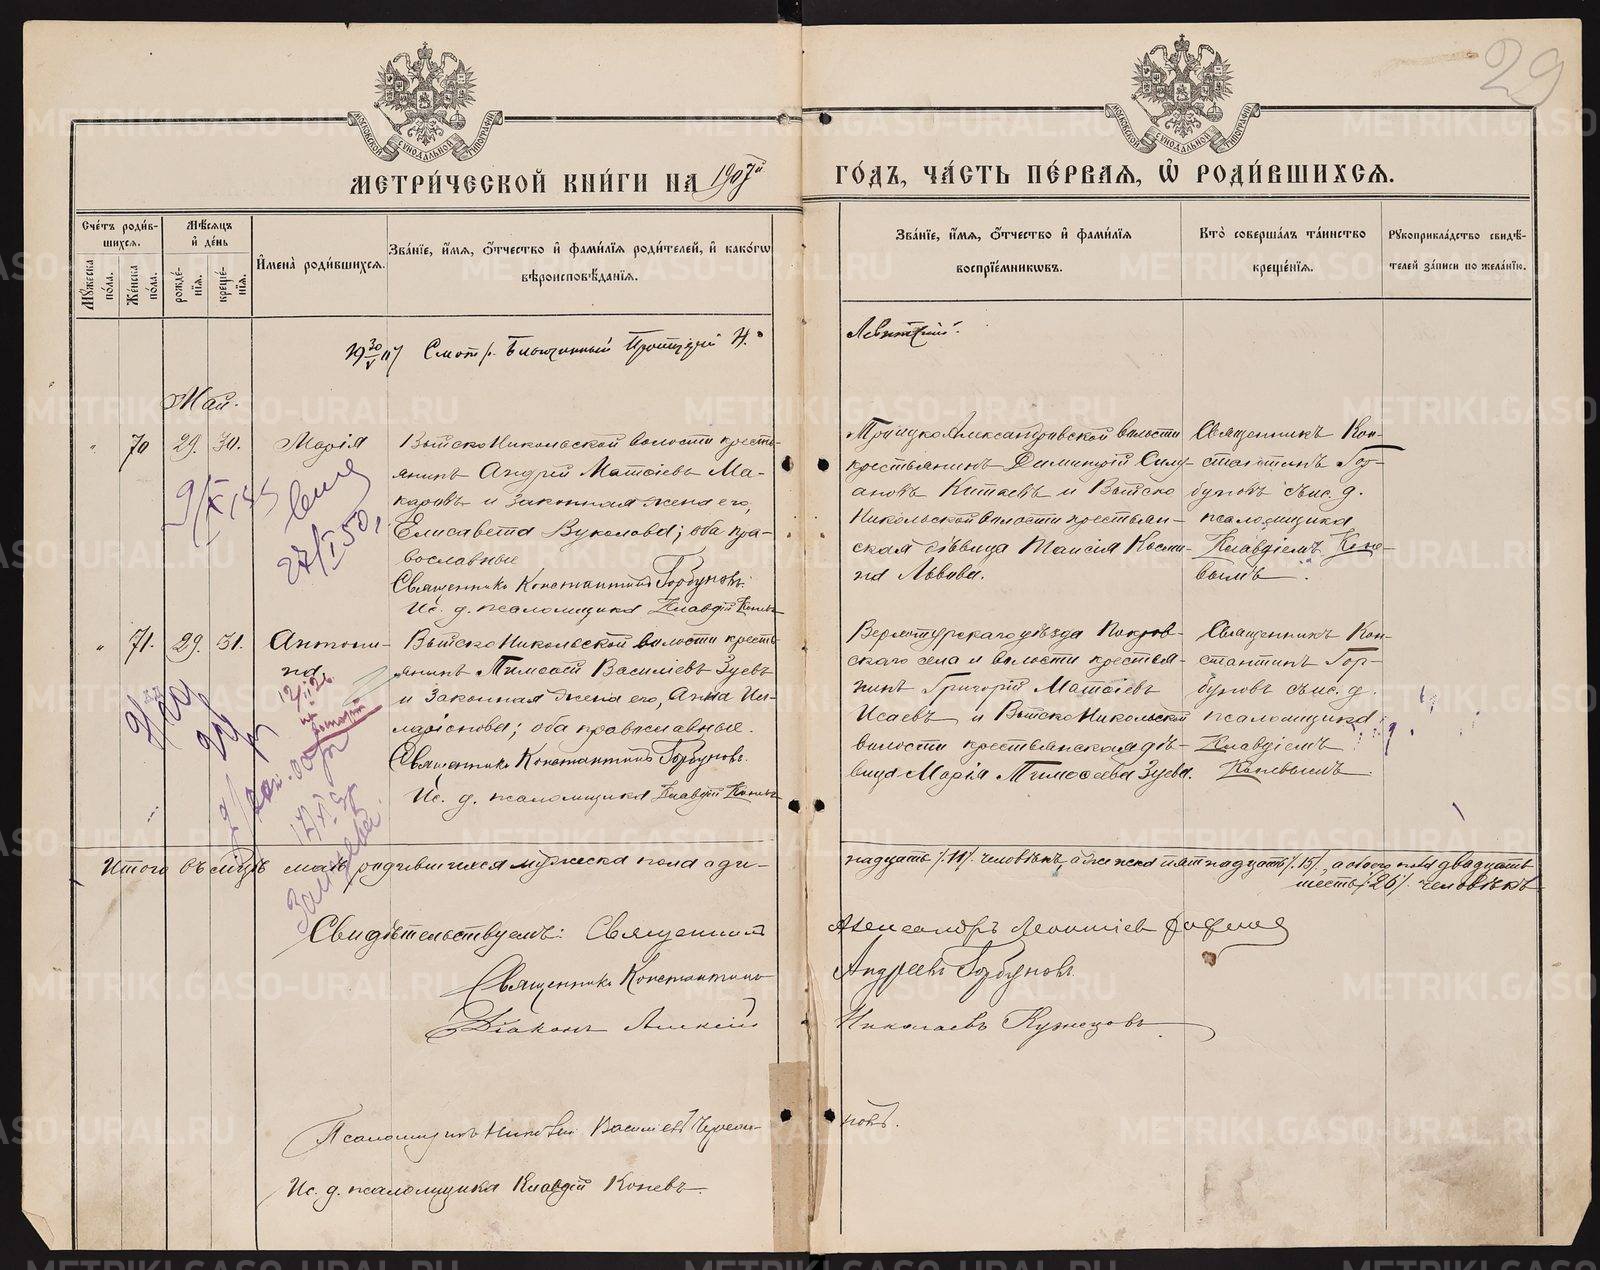 29
МОСКОВСКОЙ СѴНОДАЛЬНОЙ ТИПОГРАФІИ
МОСКОВСКОЙ СѴНОДАЛЬНОЙ ТИПОГРАФІИ
МЕТРИ́ЧЕСКОЙ КНИ́ГИ НА 1907й ГО́ДЪ, ЧА́СТЬ ПЕ́РВАЯ, Ѡ҆ РОДИ́ВШИХСЯ.
Сче́тъ роди́в-
шихся.
Мѣ́сяцъ
и҆ де́нь
Мꙋ́жска по́ла.
Же́нска по́ла.
рожде́-
нїя.
креще́-
нїя.
И҆мена̀ роди́вшихся.
Зва́нїе, и҆́мя, ѻ҆́тчество и҆ фами́лїя роди́телей, и҆ како́гѡ
вѣроисповѣ́данїя.
Зва́нїе, и҆́мя, ѻ҆́тчество и҆ фами́лїя
воспрїе́мникѡвъ.
Кто̀ соверша́лъ та́инство
креще́нїя.
Рꙋкоприкла́дство свидѣ́-
телей за́писи по жела́нїю.
19 30/V 07 Смотр. Благочинный Протоіерей Н.
Левитскій.
Май.
" 70 29. 30. Марія
Выйско Никольской волости кресть-
янинъ Андрей Матѳіевъ Ма-
каровъ и законная жена его,
Елисавета Вуколова; оба пра-
вославные
Священникъ Константинъ Горбуновъ.
Ис. д. псаломщика Клавдій Коневъ
Троицко Александровской волости
крестьянинъ Димитрій Силу-
ановъ Китаевъ и Выйско
Никольской волости крестьян-
ская дѣвица Таисія Косми-
на Львова.
Священникъ Кон-
стантинъ Гор-
буновъ съ ис. д.
псаломщика
Клавдіемъ Коне-
вымъ.
27/I 50,
" 71. 29. 31. Антони-
на
Выйско Никольской волости кресть-
янинъ Тимоѳей Василіевъ Зуевъ
и законная жена его, Анна Ил-
ларіонова; оба православные.
Священникъ Константинъ Горбуновъ.
Ис. д. псаломщика Клавдій Коневъ
Верхотурскаго уѣзда Покров-
скаго села и волости крестья-
нинъ Григорій Матѳіевъ
Исаевъ и Выйско Никольской
волости крестьянская дѣ-
вица Марія Тимоѳеева Зуева.
Священникъ Кон-
стантинъ Гор-
буновъ съ ис. д.
псаломщика
Клавдіемъ
Коневымъ.
Итого въ мѣсяцѣ маѣ родившихся мужеска пола оди-
надцать /11/ человѣкъ, а женска пятнадцать /15/, а обоего пола двадцать
шесть /26/ человѣкъ
Свидѣтельствуемъ: Священникъ Александръ Леонтіев
Священникъ Константинъ Андреевъ Горбуновъ
Діаконъ Алексій Николаевъ Кузнецовъ
Псаломщикъ Василіевъ
новъ.
Ис. д. псаломщика Клавдій Коневъ.
METRIKI.GASO-URAL.RU